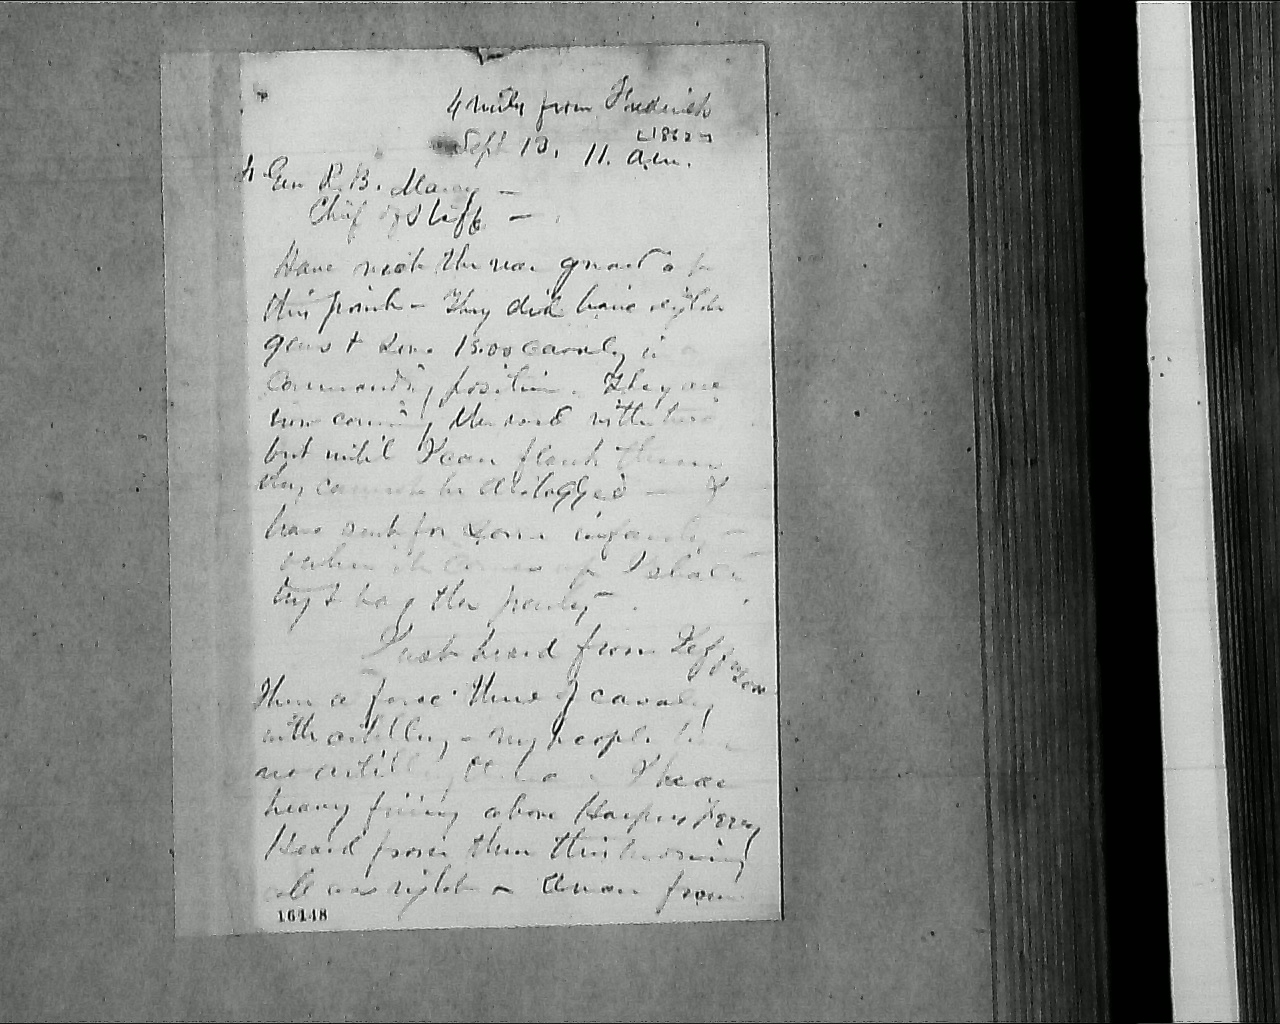 4 miles from Frederick
Sept 13, 11. a.m.
[1862]
Gen R. B. Marcy —
Chief of Staff —
Have met the rear guard at
this point — They did have eight
guns & some 1500 cavalry in a
commanding position. They are
now covering the road with two
but until I can flank them
they cannot be dislodged — I
have sent for some infantry —
when it comes up I shall
try & bag the party —.
Last heard from Jefferson
Then a force there of cavalry
with artillery — my people have
no artillery there. I hear
heavy firing above Harpers Ferry
Heard from them this morning
all was right — A man from
16448